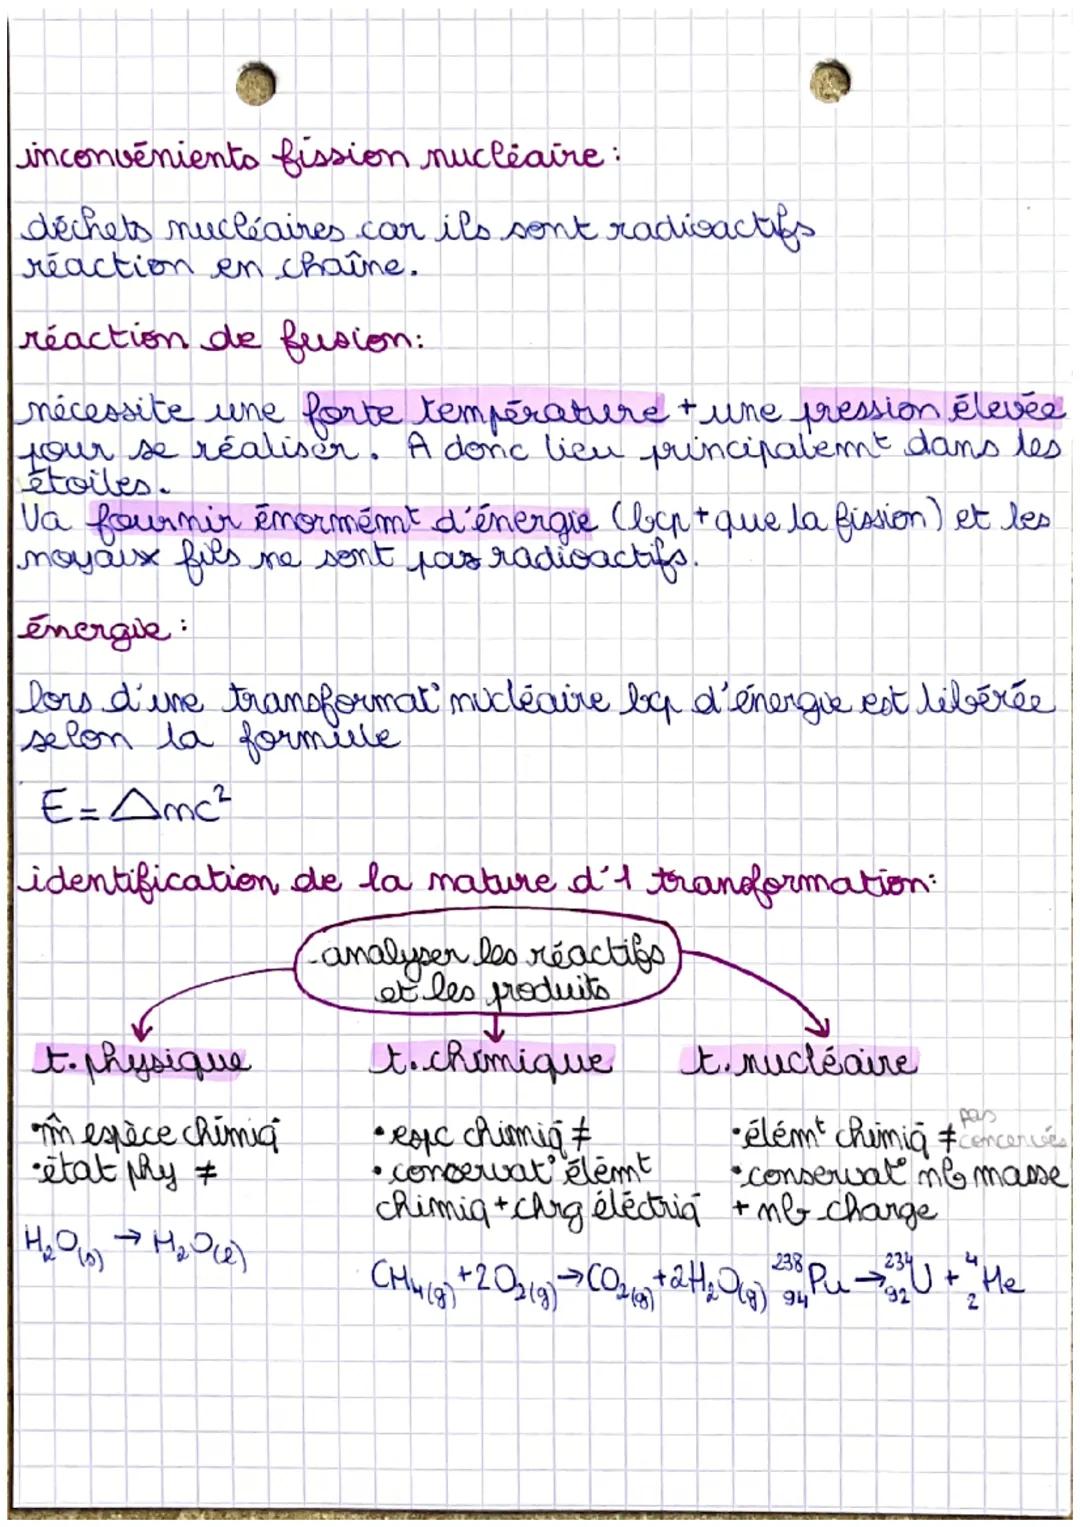 inconvénients fission nucléaire :
déchets nucléaires car ils sont radioactifs
réaction en chaîne.
réaction de fusion:
nécessite une forte température + une pression élevée
pour se réaliser. A donc lieu principalemt dans les
étoiles.
Va fournir énormémt d'énergie (bcp + que la fission) et les
noyaux fils ne sont pas radioactifs.
énergie :
lors d'une transformat° nucléaire bcp d'énergie est libérée
selon la formule
E = Δmc²
identification de la nature d'1 transformation:
analyser les réactifs
et les produits
t. physique
t. chimique
t. nucléaire
• m̂ espèce chimiq̄
• état phy ≠
H₂O(s) → H₂O(l)
• espc chimiq̄ ≠
• conservat° élémt
chimiq + chrg éléctriq̄
CH₄(g) + 2O₂(g) → CO₂(g) + 2H₂O(g)
• élémt chimiq̄ ≠ pas concervés
• conservat° nb masse
+ nb charge
²³⁸₉₄Pu → ²³⁴₉₂U + ⁴₂He